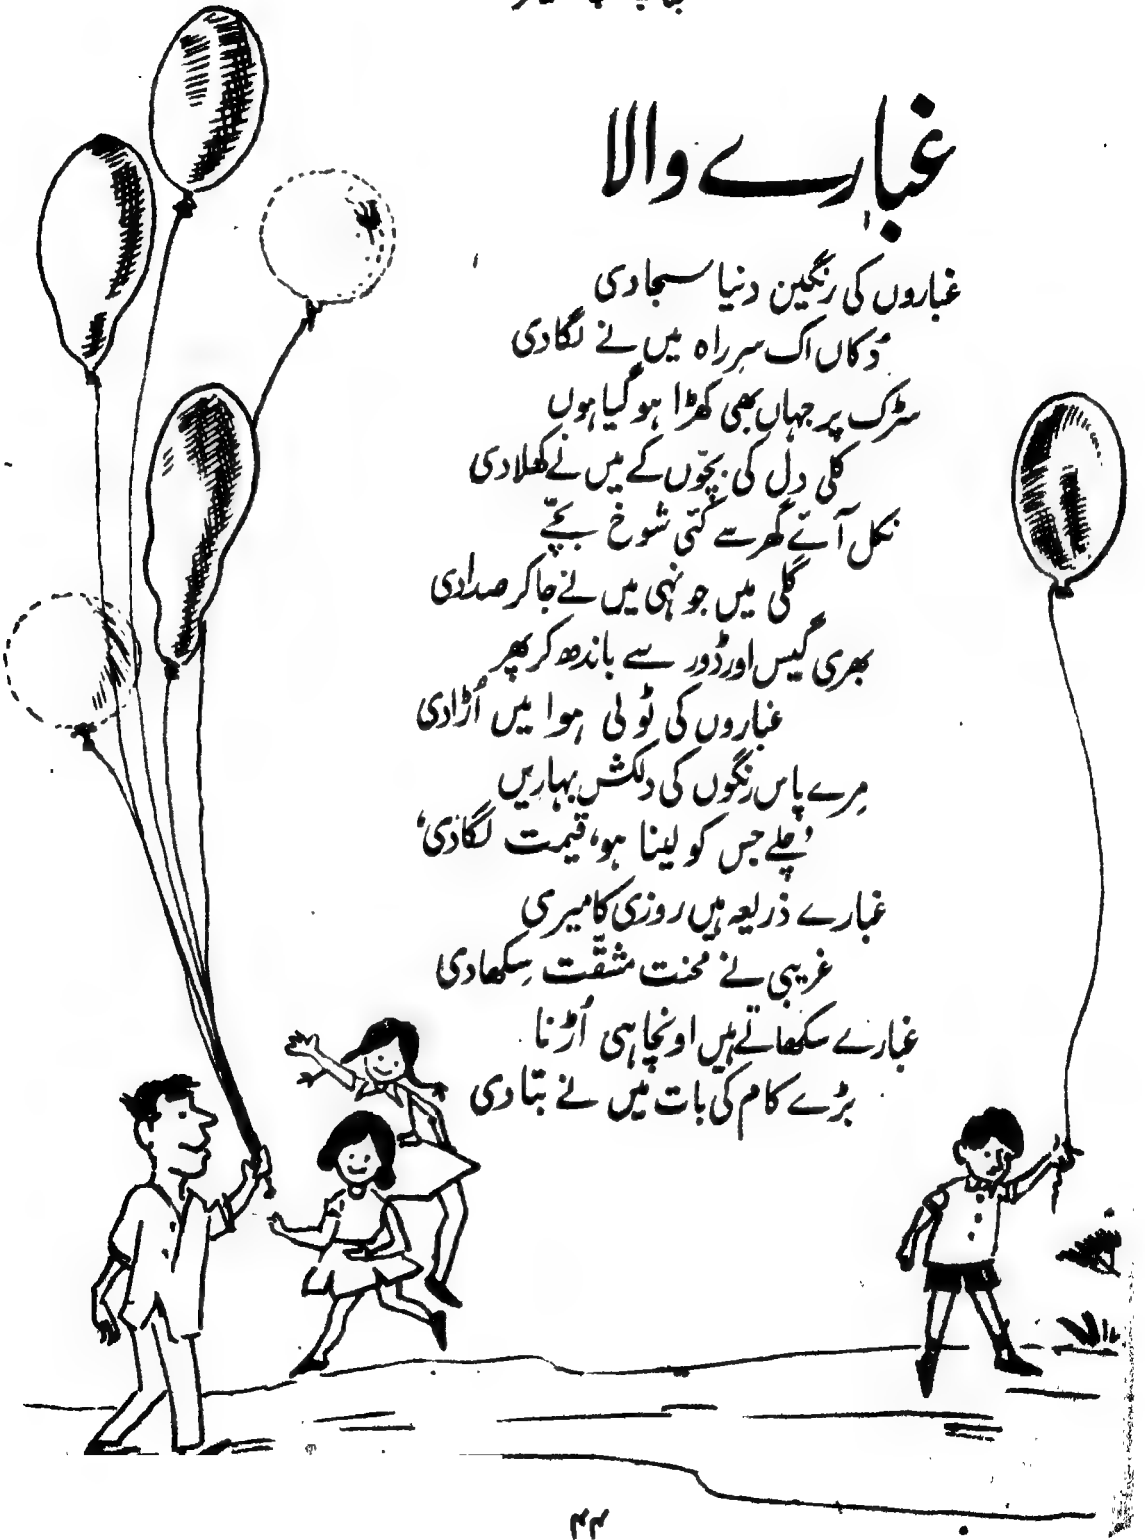 غبارے والا
غباروں کی رنگین دنیا سجادی
دُکاں اک سرِراہ میں نے لگادی
سڑک پر جہاں بھی کھڑا ہو گیا ہوں
کلی دل کی بچّوں کے میں نے کھلادی
نکل آئے گھر سے کئی شوخ بچّے
گلی میں جونہی میں نے جاکر صدادی
بھری گیس اور ڈور سے باندھ کر پھر
غباروں کی ٹولی ہوا میں اُڑادی
مِرے پاس رنگوں کی دلکش بہاریں
’چلے جس کو لینا ہو، قیمت لگادی‘
غبارے ذریعہ ہیں روزی کا میری
غریبی نے محنت مشقّت سِکھادی
غبارے سکھاتے ہیں اونچا ہی اُڑنا
بڑے کام کی بات میں نے بتادی
۴۴